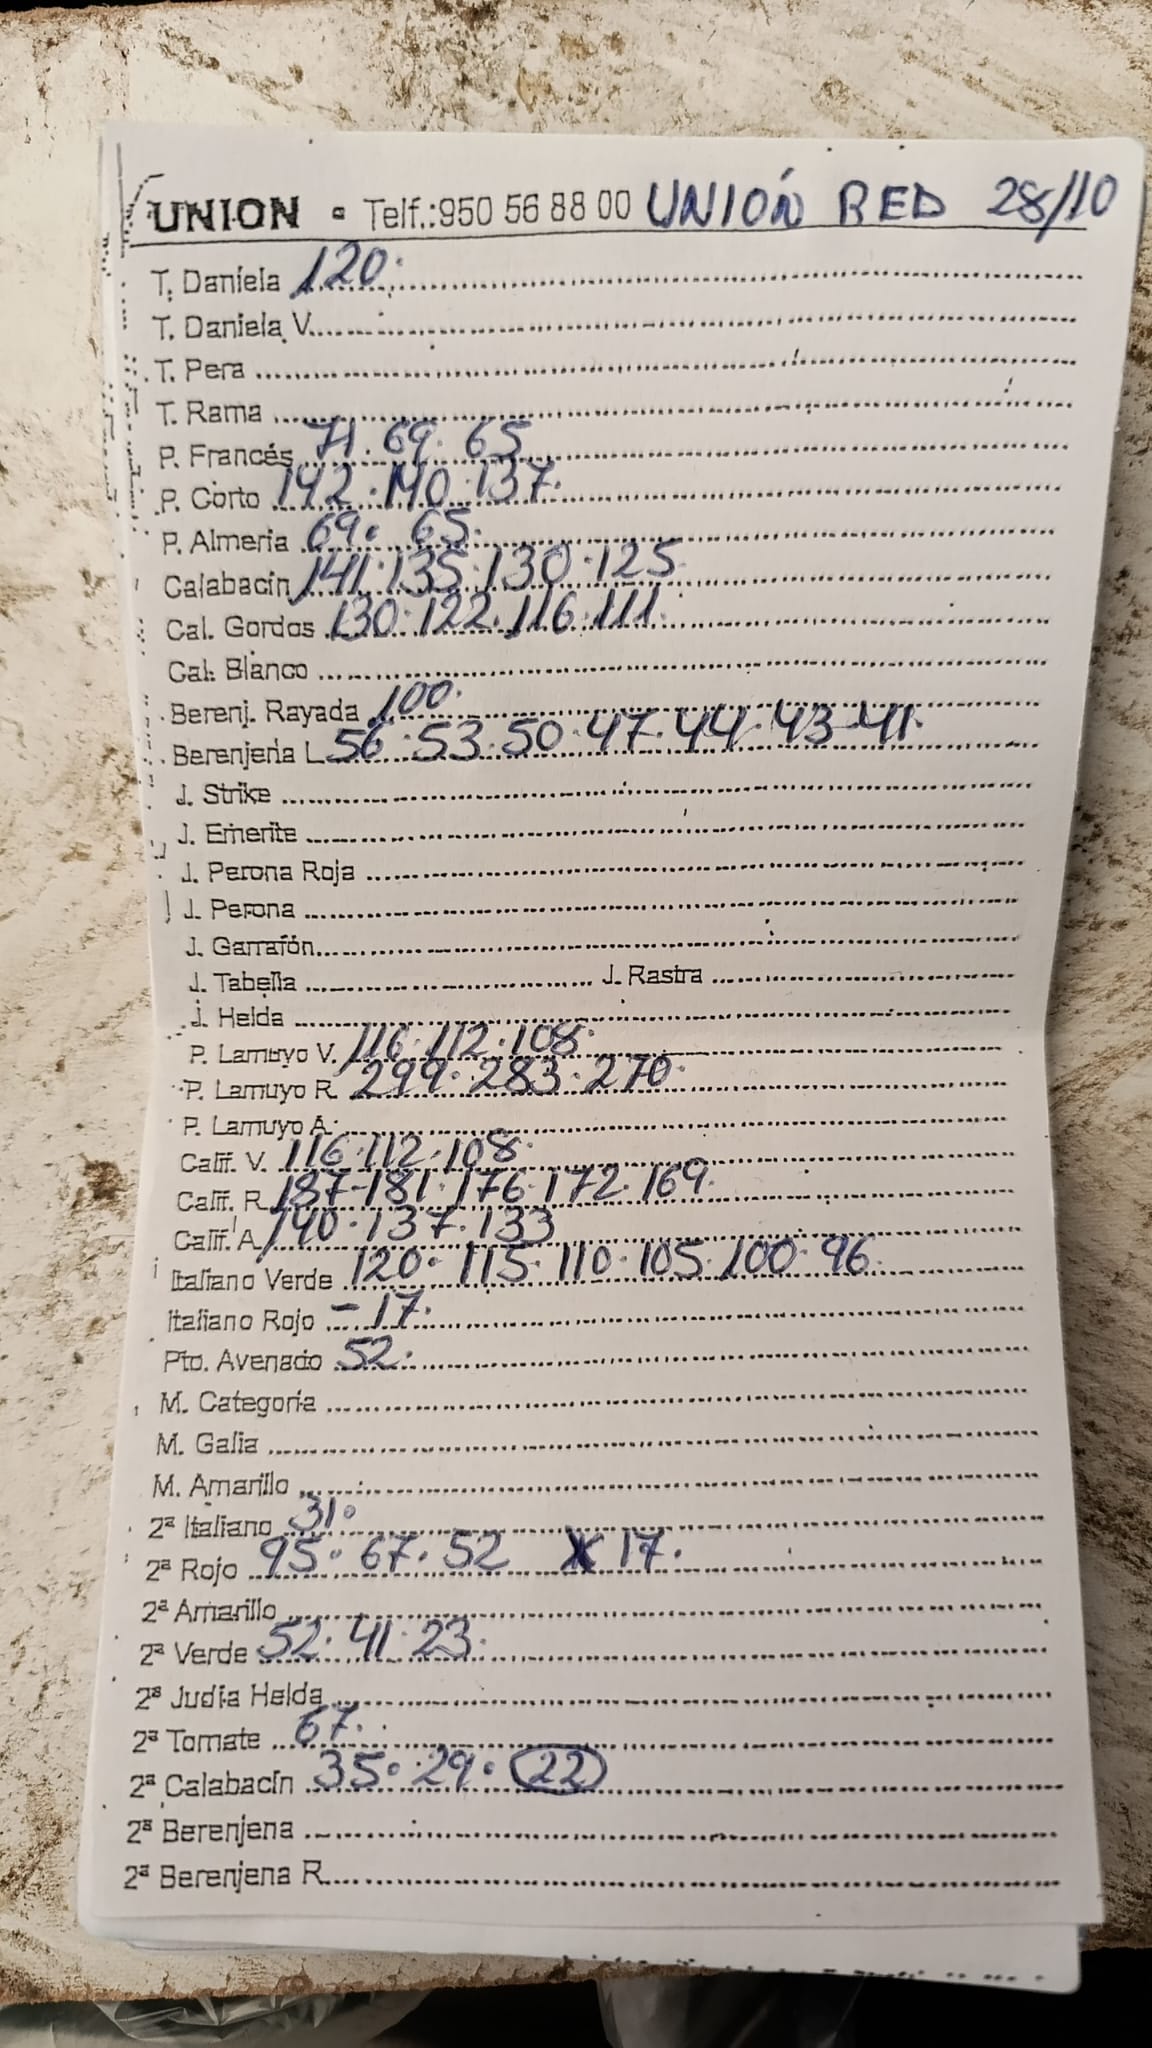 UNION - Telf.:950 56 88 00 UNIÓN RED 28/10
T. Daniela 120.
T. Daniela V.
T. Pera
T. Rama
P. Francés 71. 69. 65
P. Corto 142. 140. 137.
P. Almeria 69. 65.
Calabacín 141. 135. 130. 125
Cal. Gordos 130. 122. 116. 111.
Cal. Blanco
Berenj. Rayada 100.
Berenjena L 56. 53. 50. 47. 44. 43-41.
J. Strike
J. Emerite
J. Perona Roja
J. Perona
J. Garrafón
J. Tabella J. Rastra
J. Helda
P. Lamuyo V. 116. 112. 108.
P. Lamuyo R. 299. 283. 270.
P. Lamuyo A.
Calif. V. 116. 112. 108.
Calif. R. 187-181. 176. 172. 169.
Calif. A. 140. 137. 133
Italiano Verde 120. 115. 110. 105. 100. 96.
Italiano Rojo - 17.
Pto. Avenado 52.
M. Categoria
M. Galia
M. Amarillo
2ª Italiano 31.
2ª Rojo 95. 67. 52 X 17.
2ª Amarillo
2ª Verde 52. 41. 23.
2ª Judia Helda
2ª Tomate 67.
2ª Calabacín 35. 29. 22
2ª Berenjena
2ª Berenjena R.